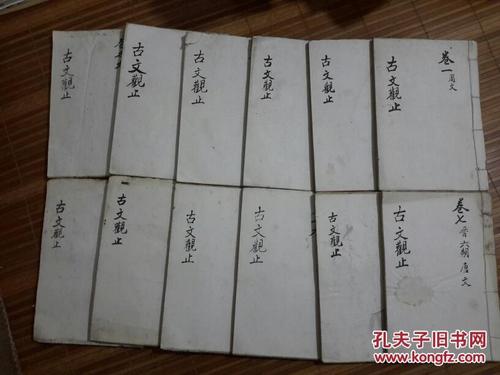 卷一周文
古文觀止
古文觀止
古文觀止
古文觀止
古文觀止
古文觀止
卷七晉六朝唐文
古文觀止
古文觀止
古文觀止
古文觀止
古文觀止
古文觀止
孔夫子旧书网
www.kongfz.com